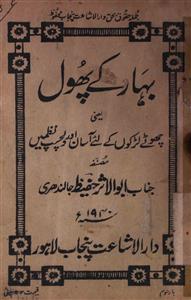 جملہ حقوق بحق دارالاشاعت پنجاب محفوظ
بہار کے پھول
یعنی
چھوٹے لڑکوں کے لئے آسان اور دلچسپ نظمیں
مصنفہ
جناب ابوالاثر حفیظ جالندھری
۱۹۳۰ء
دارالاشاعت پنجاب لاہور
بار دوم
قیمت